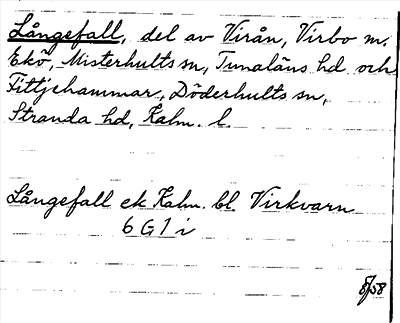 Långefall, del av Virån, Virbo m.
Ekö, Misterhults sn, Tunaläns hd och
Fittjehammar, Döderhults sn,
Stranda hd, Kalm. l.
Långefall ek Kalm. bl Virkvarn
6 G 1 i
8/58